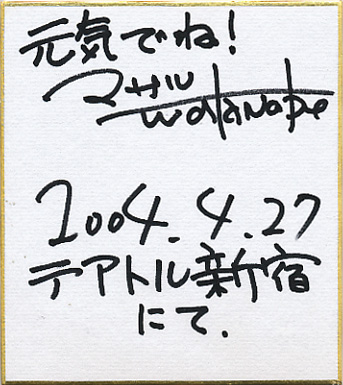 元気でね!
マサル
Watanabe
2004.4.27
テアトル新宿
にて.